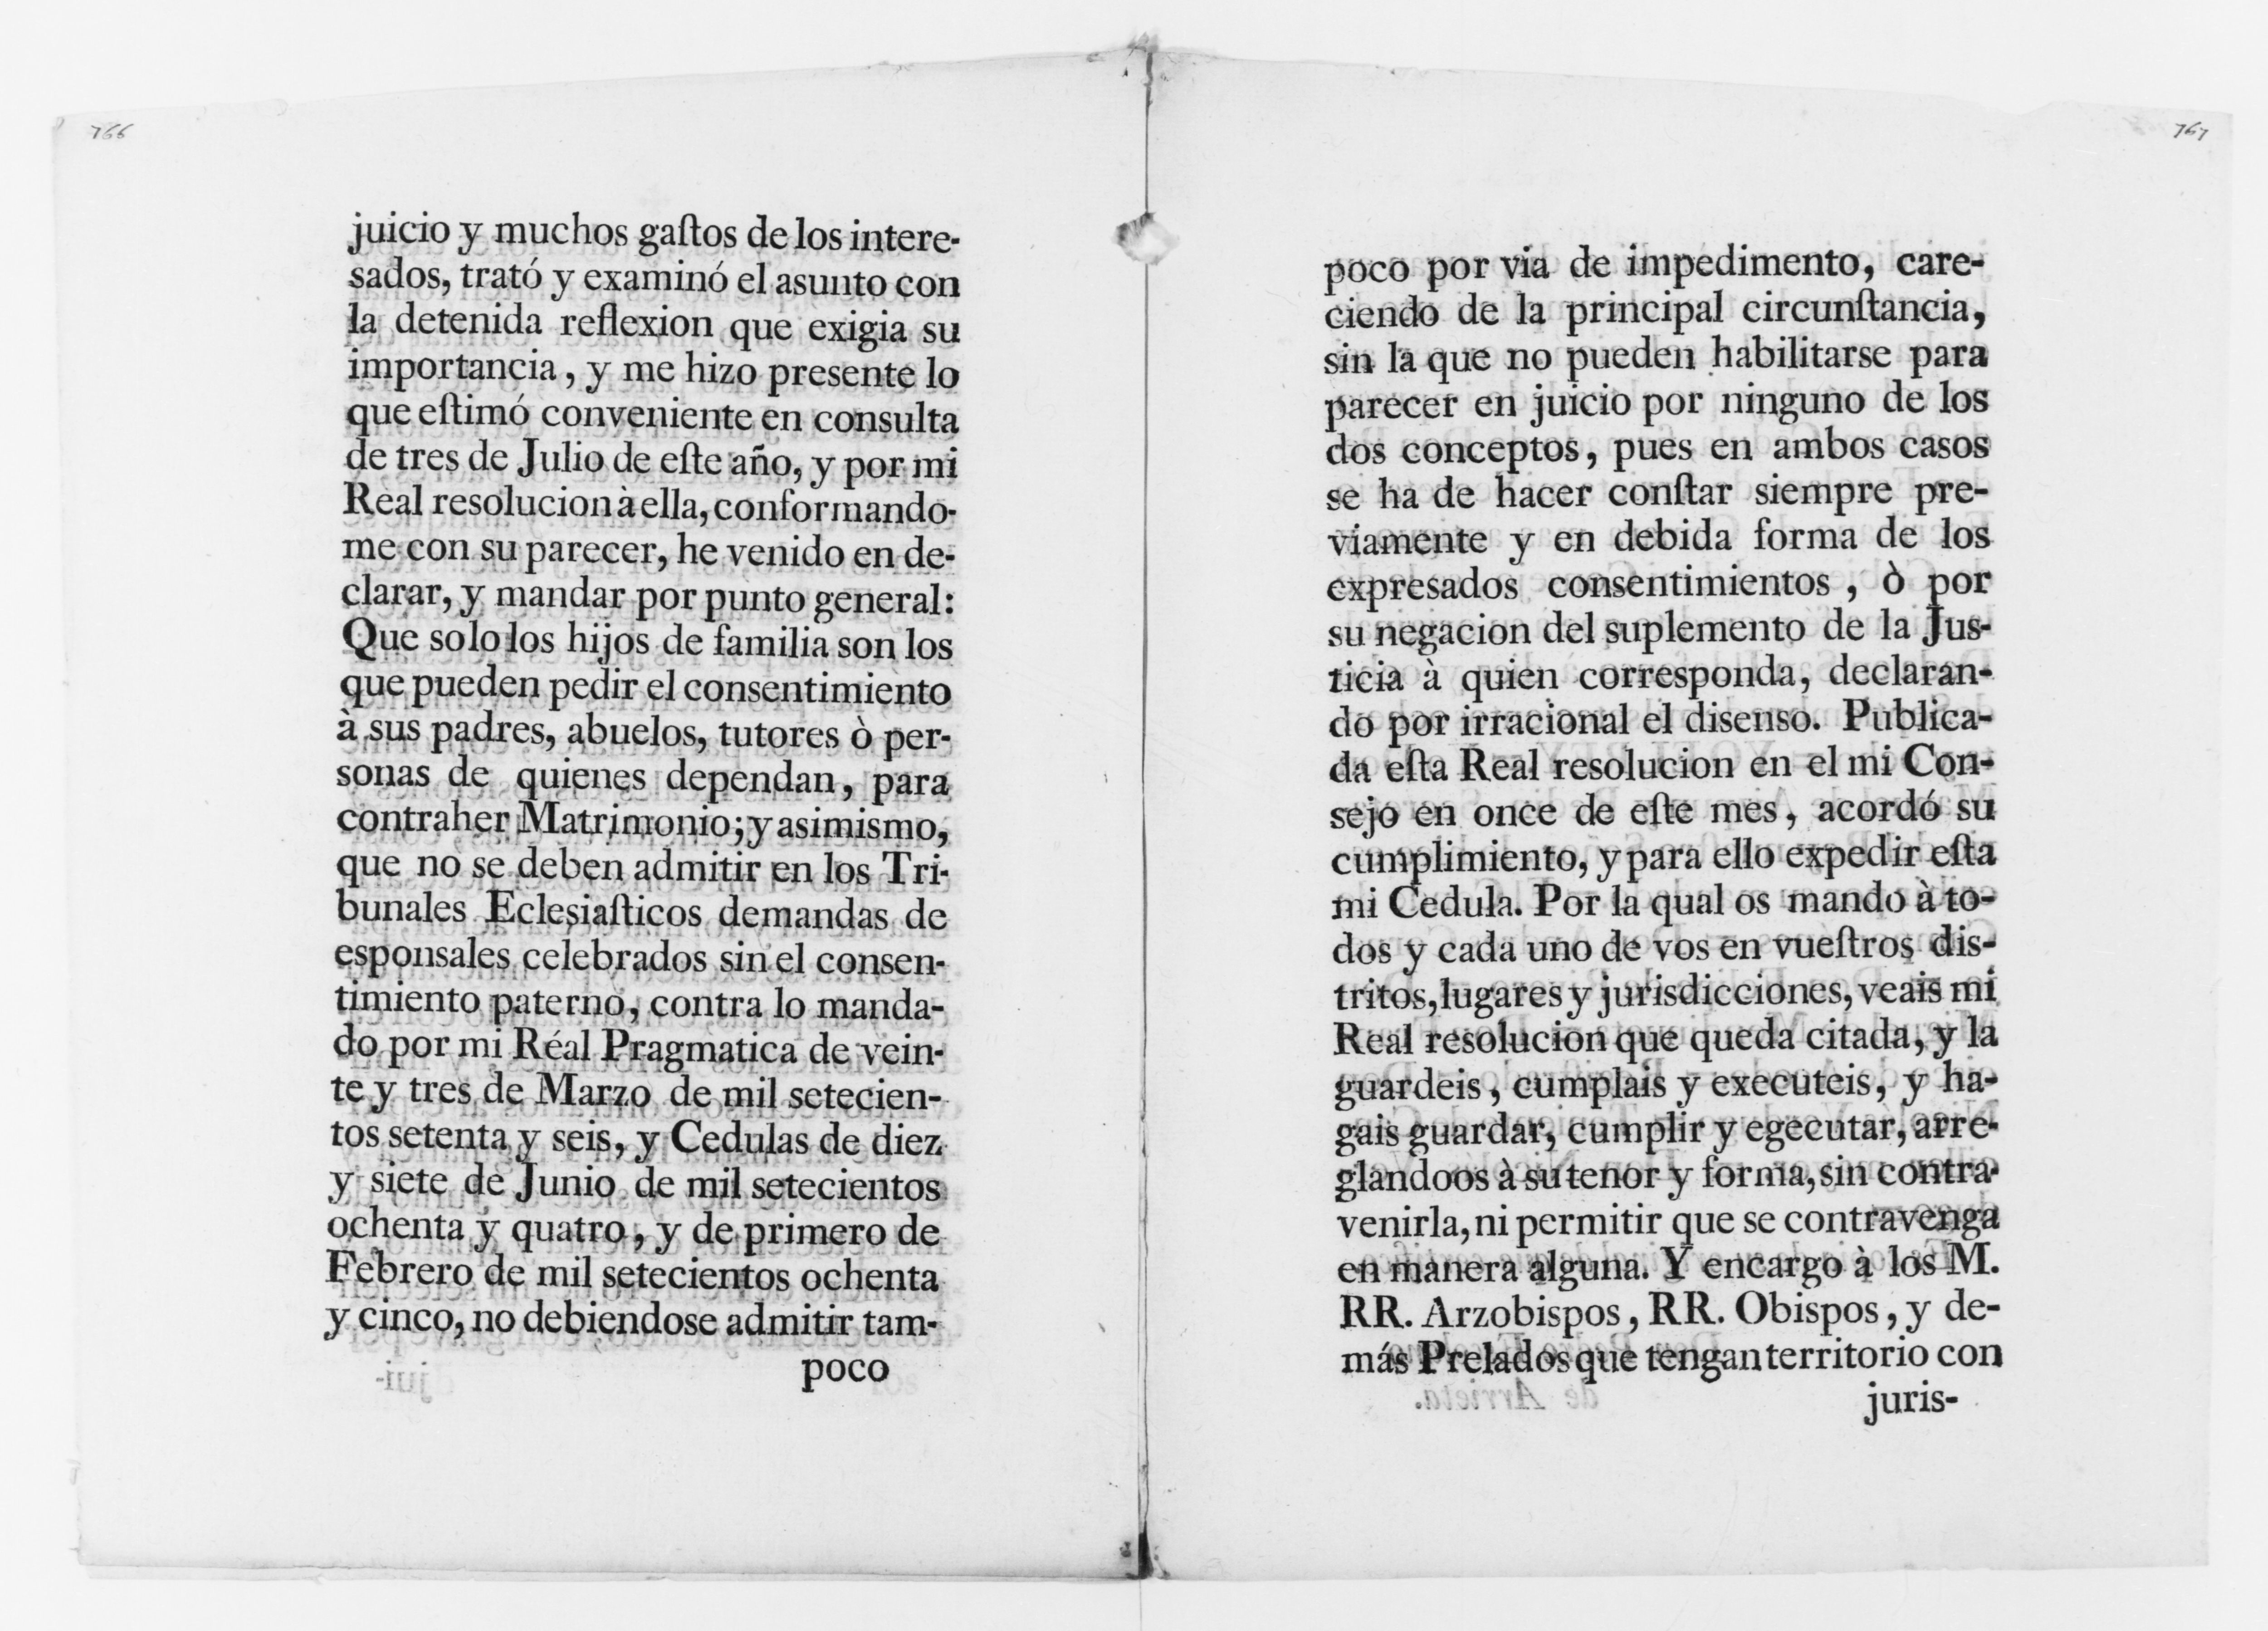 766
juicio y muchos gaſtos de los intere-
sados, trató y examinó el asunto con
la detenida reflexion que exigia su
importancia, y me hizo presente lo
que eſtimó conveniente en consulta
de tres de Julio de eſte año, y por mi
Real resolucion à ella, conformando-
me con su parecer, he venido en de-
clarar, y mandar por punto general:
Que solo los hijos de familia son los
que pueden pedir el consentimiento
à sus padres, abuelos, tutores ò per-
sonas de quienes dependan, para
contraher Matrimonio; y asimismo,
que no se deben admitir en los Tri-
bunales Eclesiaſticos demandas de
esponsales celebrados sin el consen-
timiento paterno, contra lo manda-
do por mi Réal Pragmatica de vein-
te y tres de Marzo de mil setecien-
tos setenta y seis, y Cedulas de diez
y siete de Junio de mil setecientos
ochenta y quatro, y de primero de
Febrero de mil setecientos ochenta
y cinco, no debiendose admitir tam-
poco
767
poco por via de impedimento, care-
ciendo de la principal circunſtancia,
sin la que no pueden habilitarse para
parecer en juicio por ninguno de los
dos conceptos, pues en ambos casos
se ha de hacer conſtar siempre pre-
viamente y en debida forma de los
expresados consentimientos, ò por
su negacion del suplemento de la Jus-
ticia à quien corresponda, declaran-
do por irracional el disenso. Publica-
da eſta Real resolucion en el mi Con-
sejo en once de eſte mes, acordó su
cumplimiento, y para ello expedir eſta
mi Cedula. Por la qual os mando à to-
dos y cada uno de vos en vueſtros dis-
tritos, lugares y jurisdicciones, veais mi
Real resolucion que queda citada, y la
guardeis, cumplais y executeis, y ha-
gais guardar, cumplir y egecutar, arre-
glandoos à su tenor y forma, sin contra-
venirla, ni permitir que se contravenga
en manera alguna. Y encargo à los M.
RR. Arzobispos, RR. Obispos, y de-
más Prelados que tengan territorio con
juris-